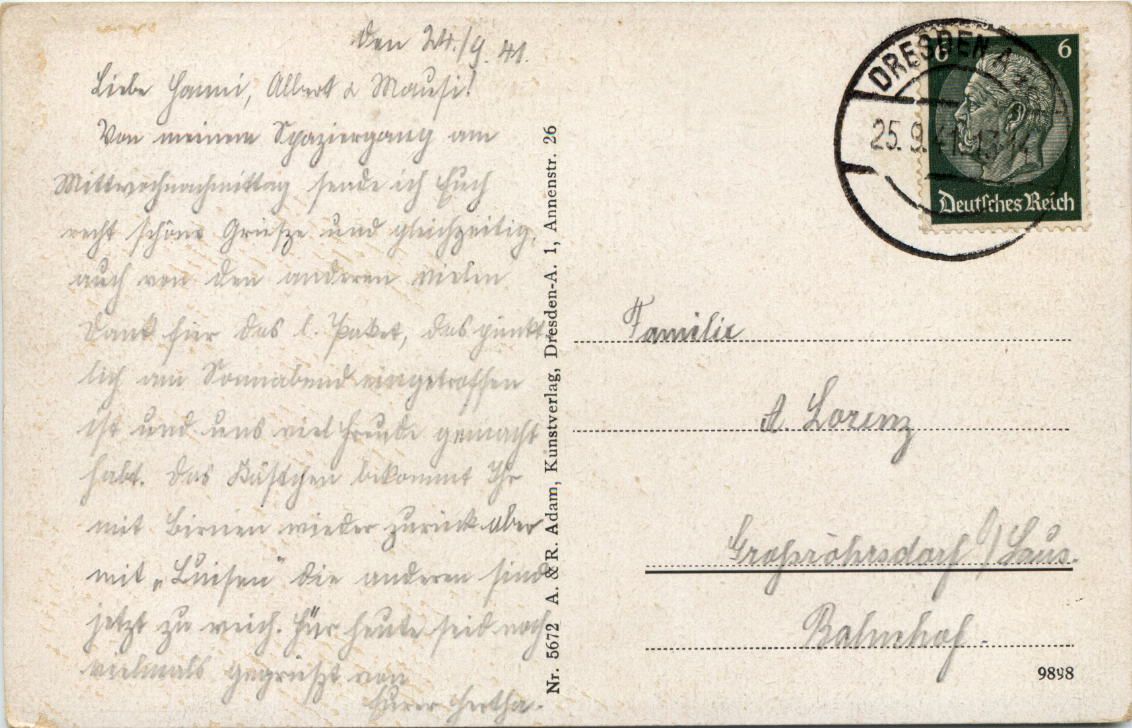 den 24./9.41.
Liebe Hanni, Albert & Mausi!
Von meinem Spaziergang am
Mittwochnachmittag sende ich Euch
recht schöne Grüsze und gleichzeitig,
auch von den anderen vielen
Dank für das l. Paket, das pünkt
lich am Sonnabend eingetroffen
ist und uns viel Freude gemacht
habt. Das Kästchen bekommt Ihr
mit Birnen wieder zurück aber
mit „Luisen" die anderen sind
jetzt zu weich. Für heute seid noch
vielmals gegrüszt von
Eurer Hertha.
Nr. 5672 A. & R. Adam, Kunstverlag, Dresden-A. 1, Annenstr. 26
DRESDEN A
25.9.41.13-14
6 6
Deutsches Reich
Familie
A. Lorenz
Großröhrsdorf i/Saus.
Bahnhof.
9898